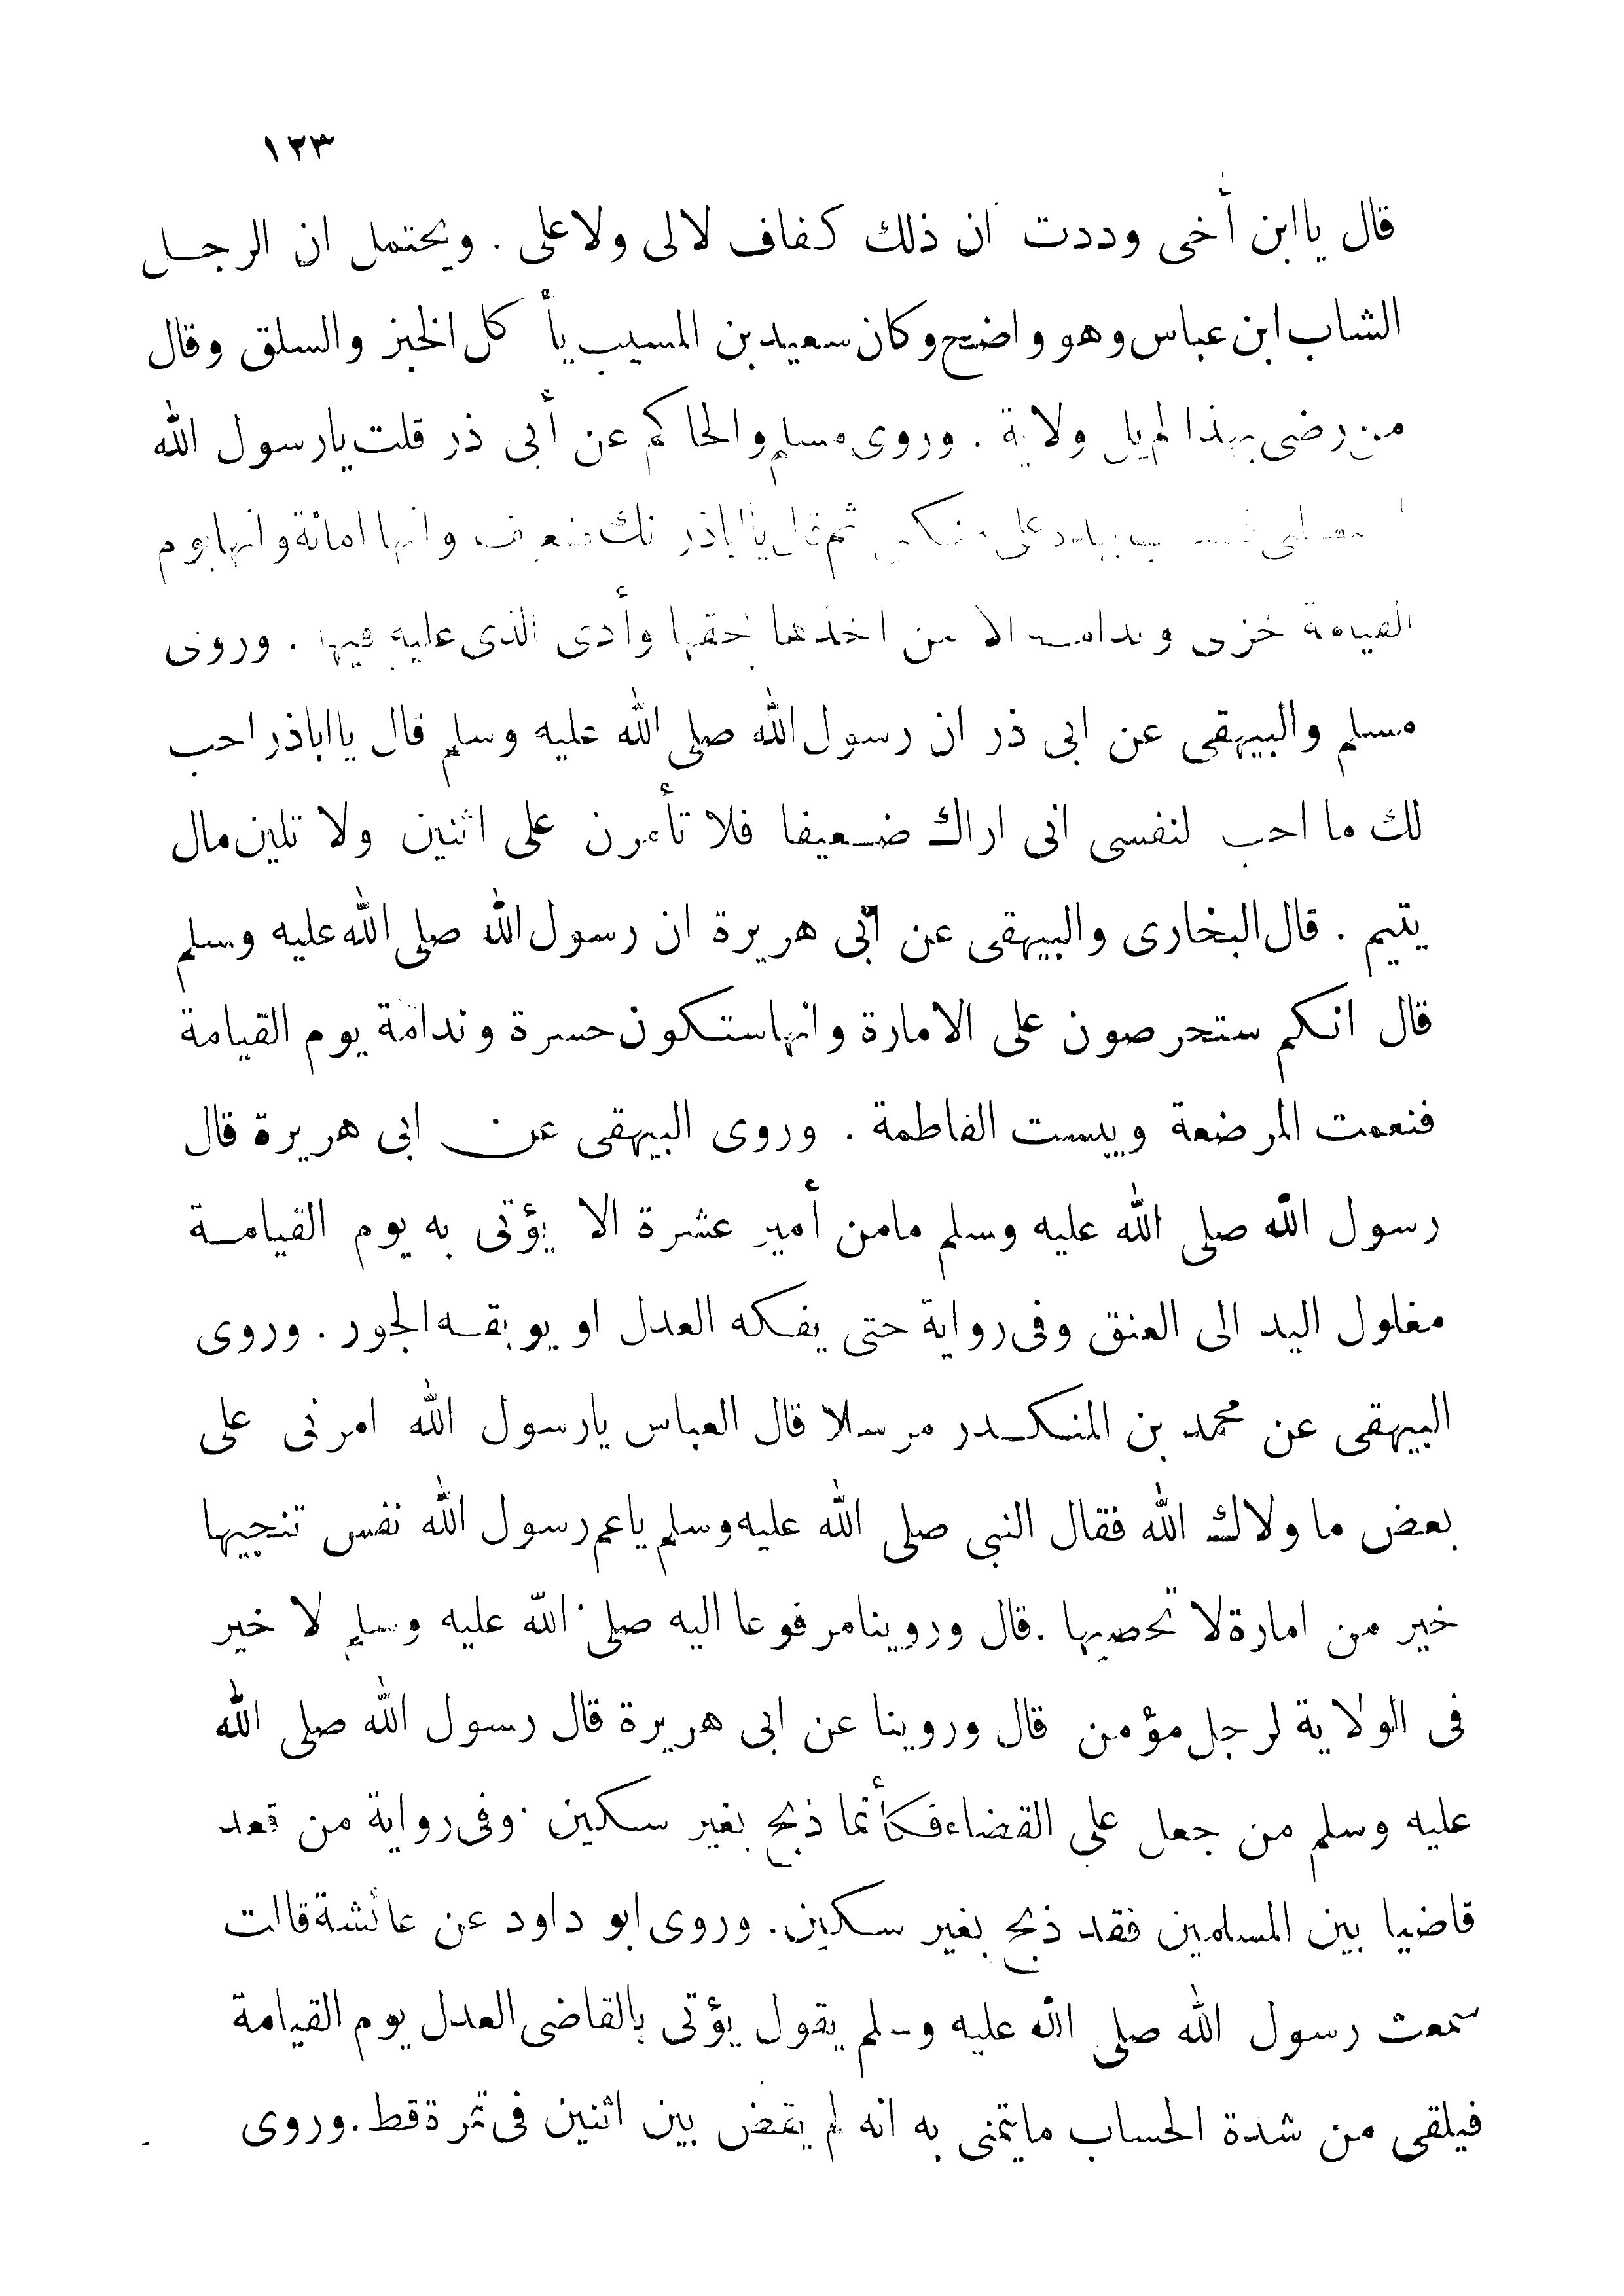 ١٢٣
قال يا ابن أخى وددت ان ذلك كفاف لا لى ولا على . ويحتمل ان الرجل
الشاب ابن عباس وهو واضح وكان سعيد بن المسيب يأكل الخبز والسلق وقال
من رضى بهذا لم يل ولاية . وروى مسلم والحاكم عن أبى ذر قلت يا رسول الله
ثم قال يا اباذر نك ضعيف وانها امانة وانها يوم
القيامة خزى وندامة الا من اخذها بحقها وأدى الذى عليه فيها . وروى
مسلم والبيهقى عن ابى ذر ان رسول الله صلى الله عليه وسلم قال يا اباذر احب
لك ما احب لنفسى انى اراك ضعيفا فلا تأمرن على اثنين ولا تلين مال
يتيم . قال البخارى والبيهقى عن أبى هريرة ان رسول الله صلى الله عليه وسلم
قال انكم ستحرصون على الامارة وانها ستكون حسرة وندامة يوم القيامة
فنعمت المرضعة وبيست الفاطمة . وروى البيهقى عن ابى هريرة قال
رسول الله صلى الله عليه وسلم مامن أمير عشرة الا يؤتى به يوم القيامة
مغلول اليد الى العنق وفى رواية حتى يفكه العدل او يوبقه الجور . وروى
البيهقى عن محمد بن المنكدر مرسلا قال العباس يارسول الله امرنى على
بعض ما ولاك الله فقال النبى صلى الله عليه وسلم ياعم رسول الله نفس تنجيها
خير من امارة لا تحصيها . قال وروينا مرفوعا اليه صلى الله عليه وسلم لا خير
فى الولاية لرجل مؤمن قال وروينا عن ابى هريرة قال رسول الله صلى الله
عليه وسلم من جعل على القضاء فكأنما ذبح بغير سكين . وفى رواية من قعد
قاضيا بين المسلمين فقد ذبح بغير سكين . وروى ابو داود عن عائشة قالت
سمعت رسول الله صلى الله عليه وسلم يقول يؤتى بالقاضى العدل يوم القيامة
فيلقى من شدة الحساب مايتمنى به انه لم يقض بين اثنين فى تمرة قط . وروى